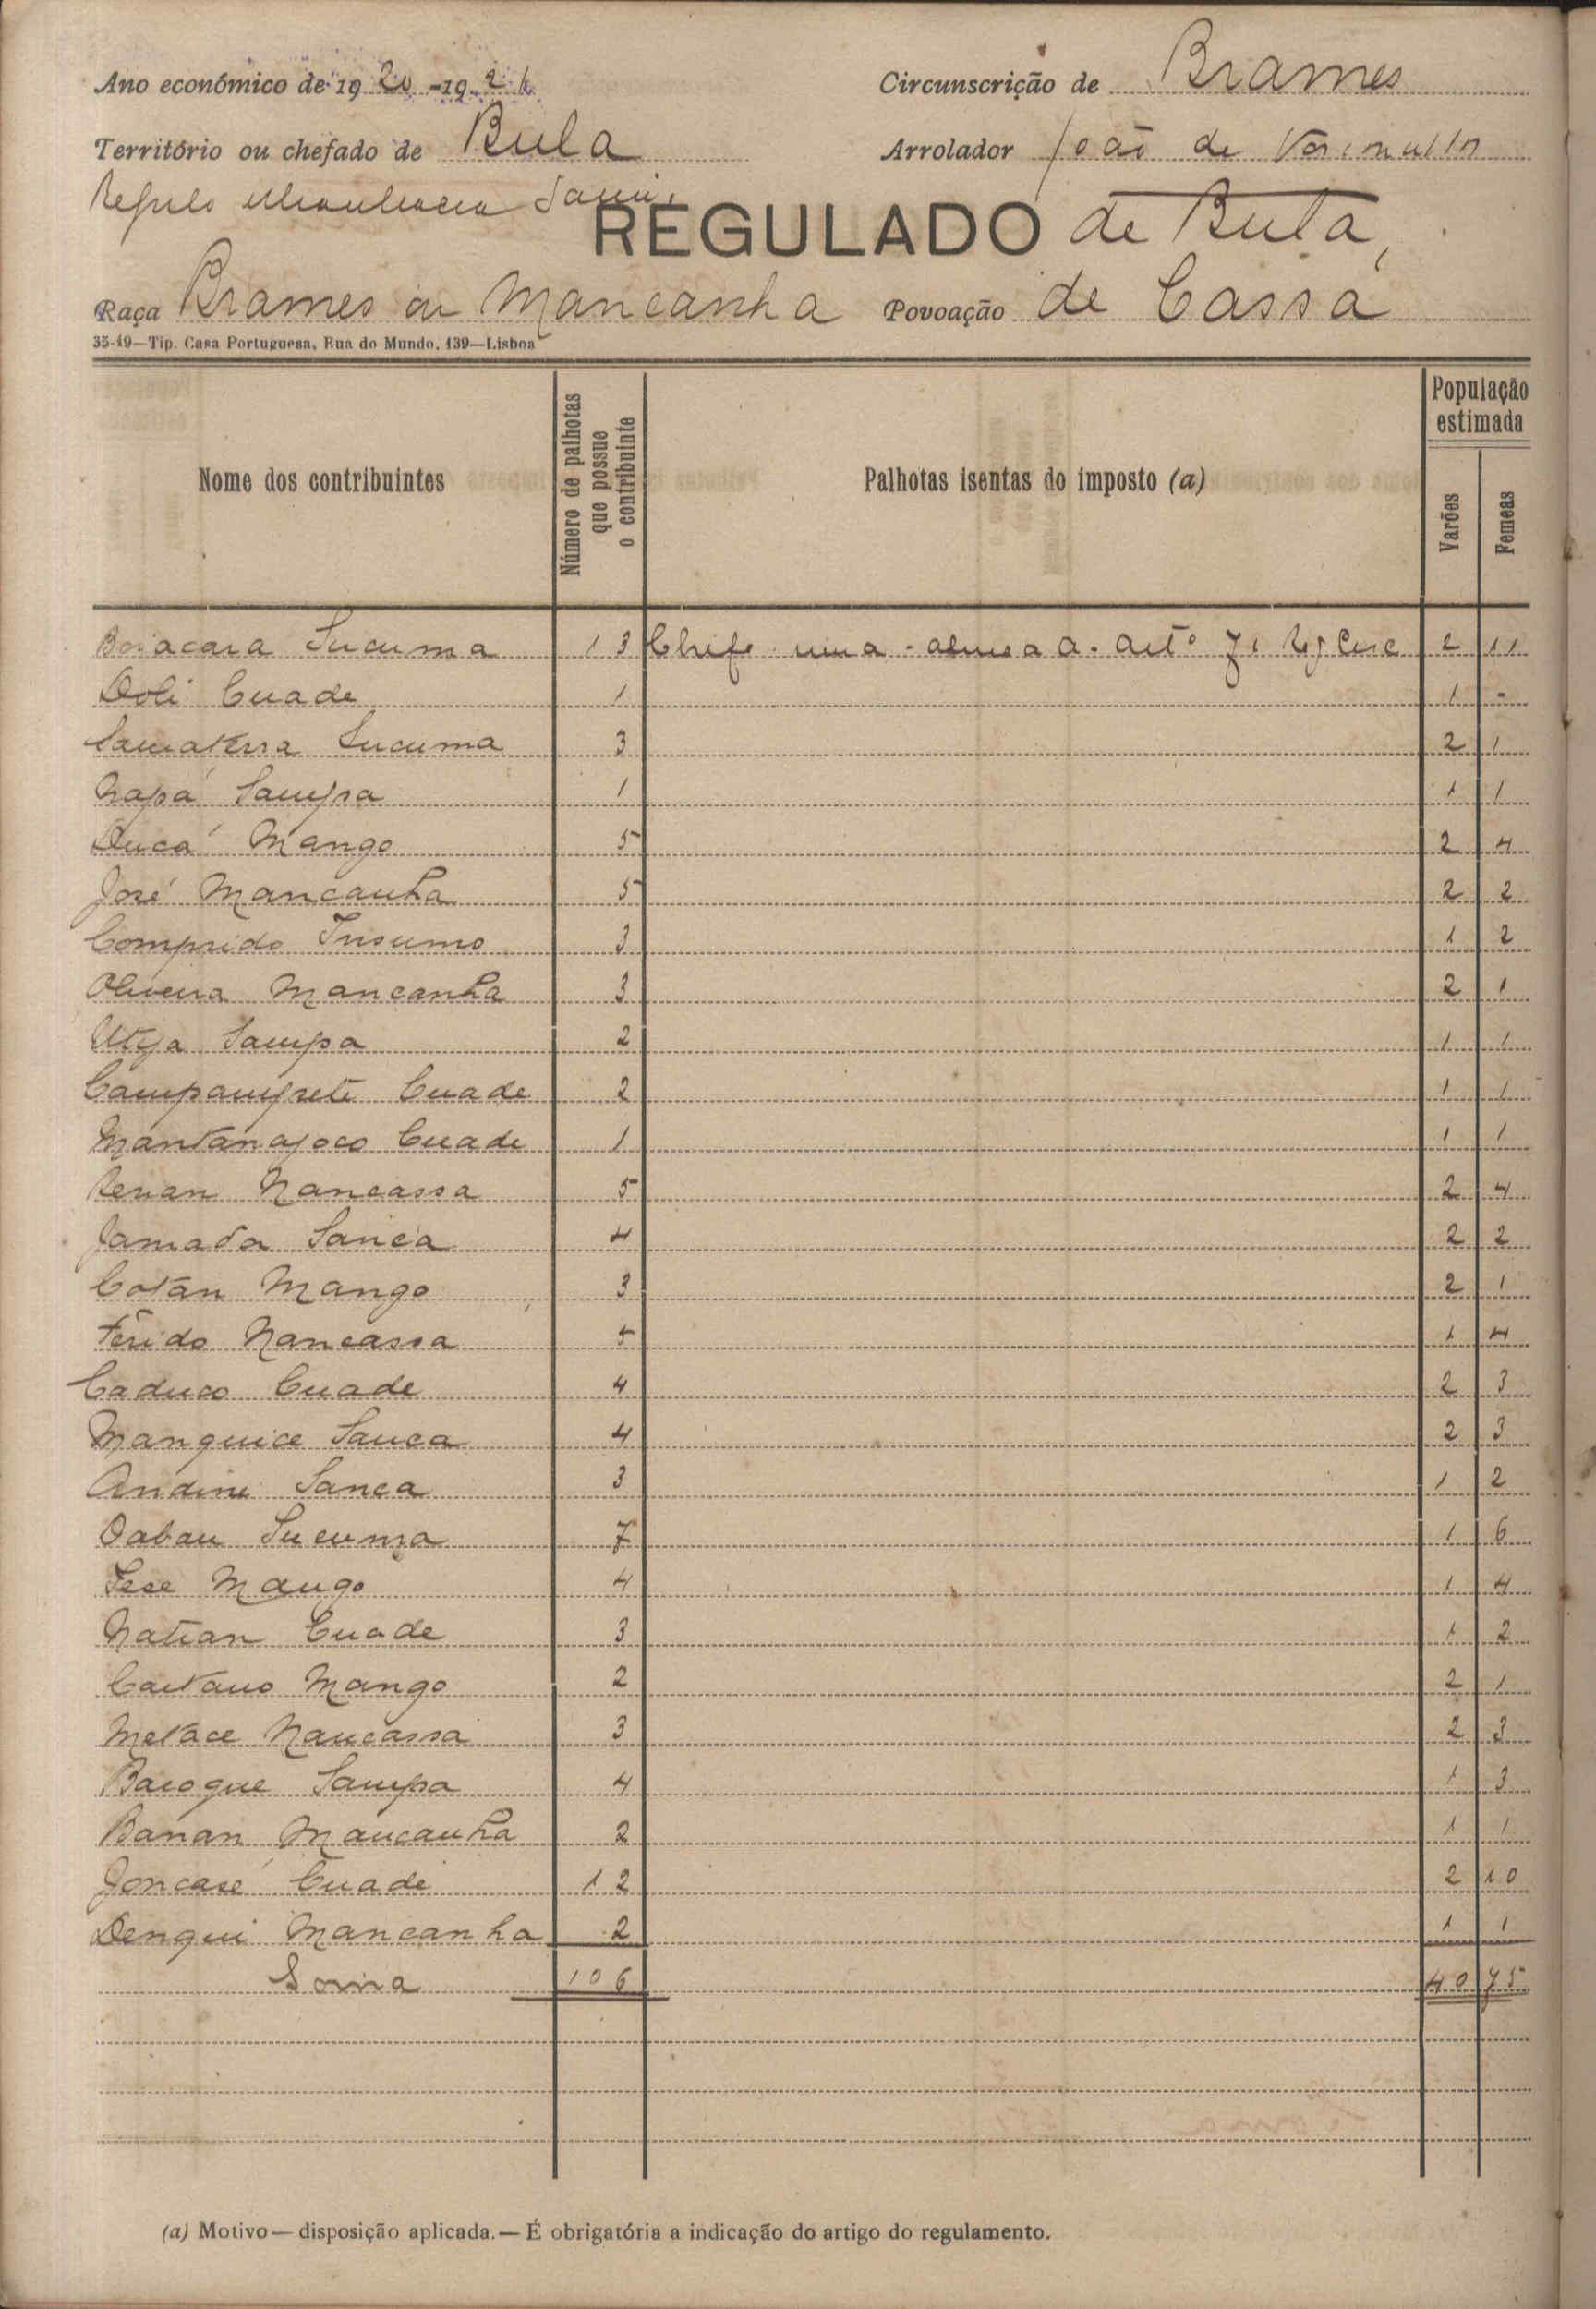 Ano económico de 1920-192
Circunscrição de Brames
Território ou chefado de Bula
Arrolador João de
Regulo
REGULADO de Bula,
Raça Brames ou Mancanha Povoação de Cassá
35-19—Tip. Casa Portuguesa, Rua do Mundo, 139—Lisboa
Nome dos contribuintes
Número de palhotas
que possue
o contribuinte
Palhotas isentas do imposto (a)
População
estimada
Varões
Femeas
Sucuma 13 Chefe uma 2 11
Doli Cuade 1 1 -
Sucuma 3 2 1
Napá Sampa 1 1 1
Ducá Mango 5 2 4
José Mancanha 5 2 2
Comprido Insumo 3 1 2
Oliveira Mancanha 3 2 1
Sampa 2 1 1
Cuade 2 1 1
Cuade 1 1 1
Nancassa 5 2 4
Jamada Sanca 4 2 2
Cotán Mango 3 2 1
Férido Nancassa 5 1 4
Caduco Cuade 4 2 3
Manquice Sanca 4 2 3
Andine Sanca 3 1 2
Sucuma 7 1 6
Mango 4 1 4
Natian Cuade 3 1 2
Caetano Mango 2 2 1
Metace Nancassa 3 2 3
Sampa 4 1 3
Banan Mancanha 2 1 1
Joncasé Cuade 12 2 10
Dengui Mancanha 2 1 1
Soma 106 40 75
(a) Motivo — disposição aplicada. — É obrigatória a indicação do artigo do regulamento.